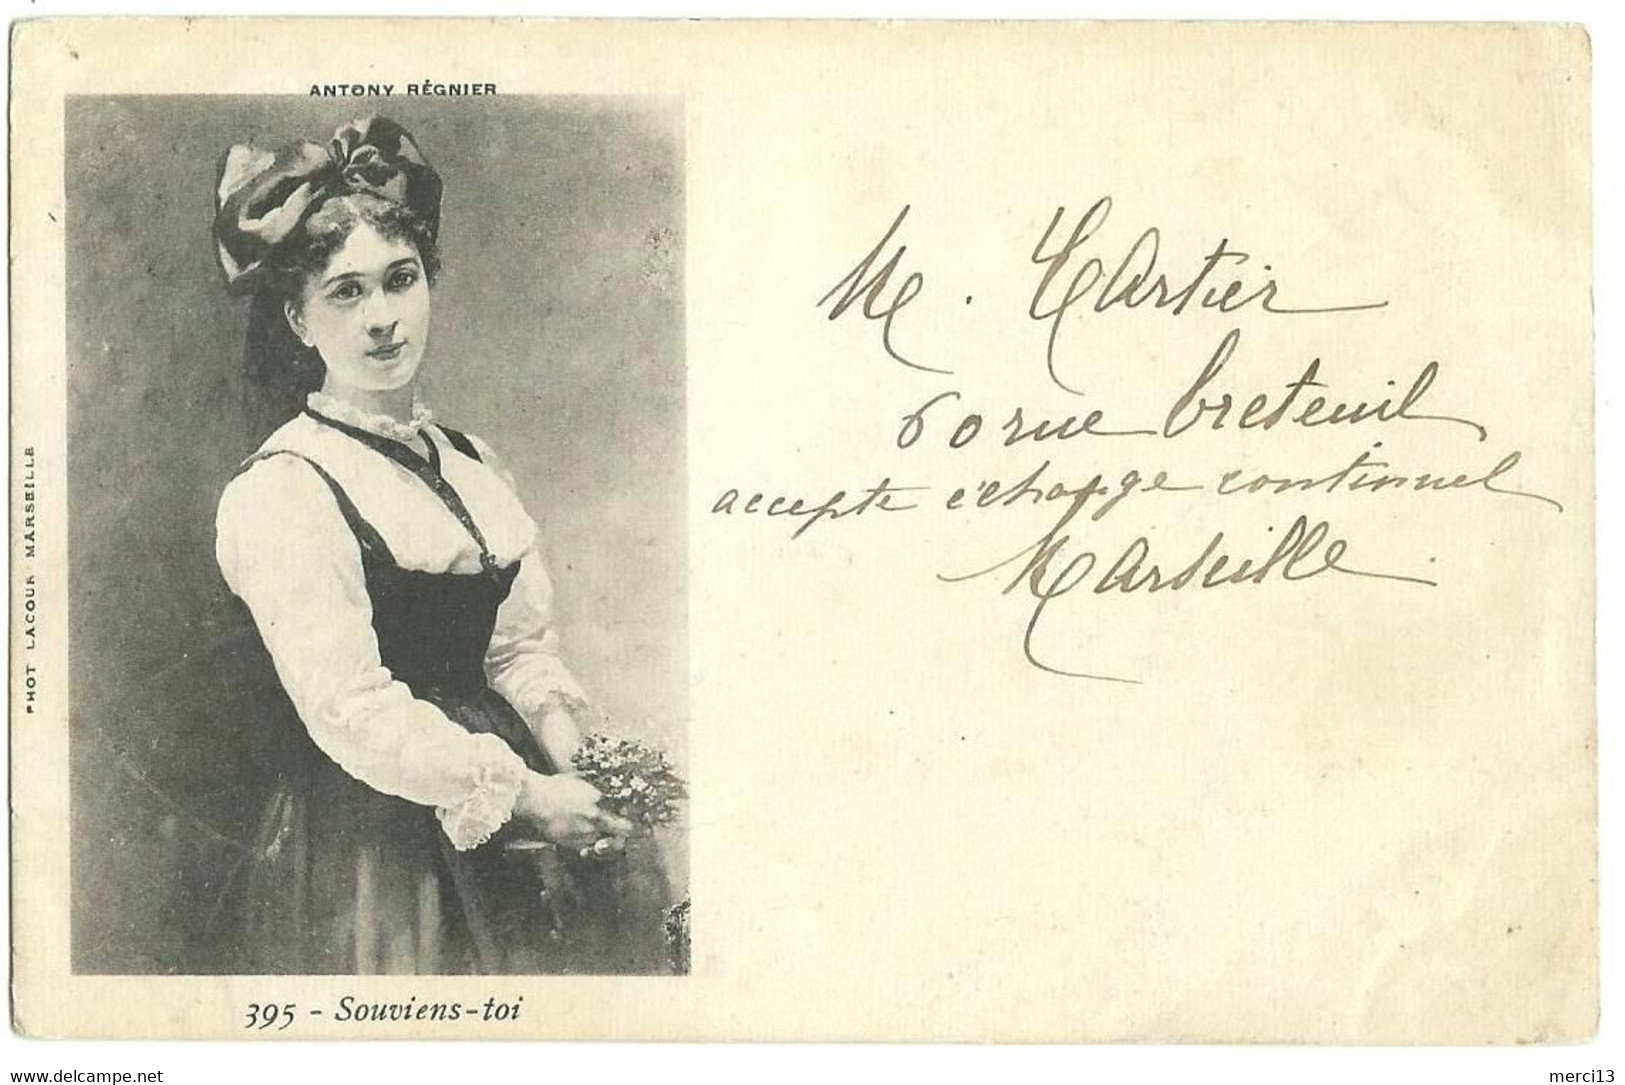 ANTONY RÉGNIER
PHOT LACOUR MARSEILLE
395 - Souviens-toi
M. Cartier
60 rue breteuil
accepte échange continuel
Marseille
delcampe.net
merci13